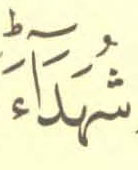 شُهَدَآءَؕ